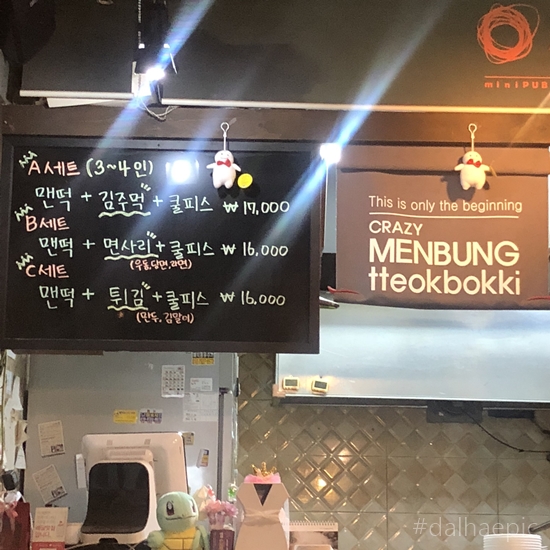 miniPUB
A세트 (3~4인)
맨떡 + 김주먹 + 쿨피스 ₩17,000
B세트
맨떡 + 면사리 + 쿨피스 ₩16,000
(우동,당면,라면)
C세트
맨떡 + 튀김 + 쿨피스 ₩16,000
(만두, 김말이)
This is only the beginning
CRAZY
MENBUNG
tteokbokki
#dalhaepic